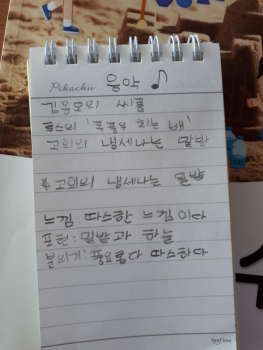 Pikachu 음악 ♪
김홍도의 씨름
모스의 '폭풍우 치는 배'
고흐의 냄새나는 밀밭
4 고흐의 냄새나는 밀밭
느낌: 따스한 느낌이다
표현: 밀밭과 하늘
분위기: 풍요롭다 따스하다